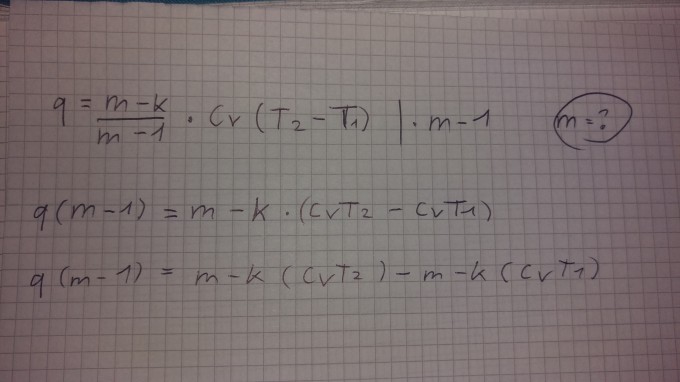 q = m-k/m-1 · Cv (T2 - T1) | · m-1 m=?
q(m-1) = m-k · (CvT2 - CvT1)
q(m-1) = m-k (CvT2) - m-k (CvT1)